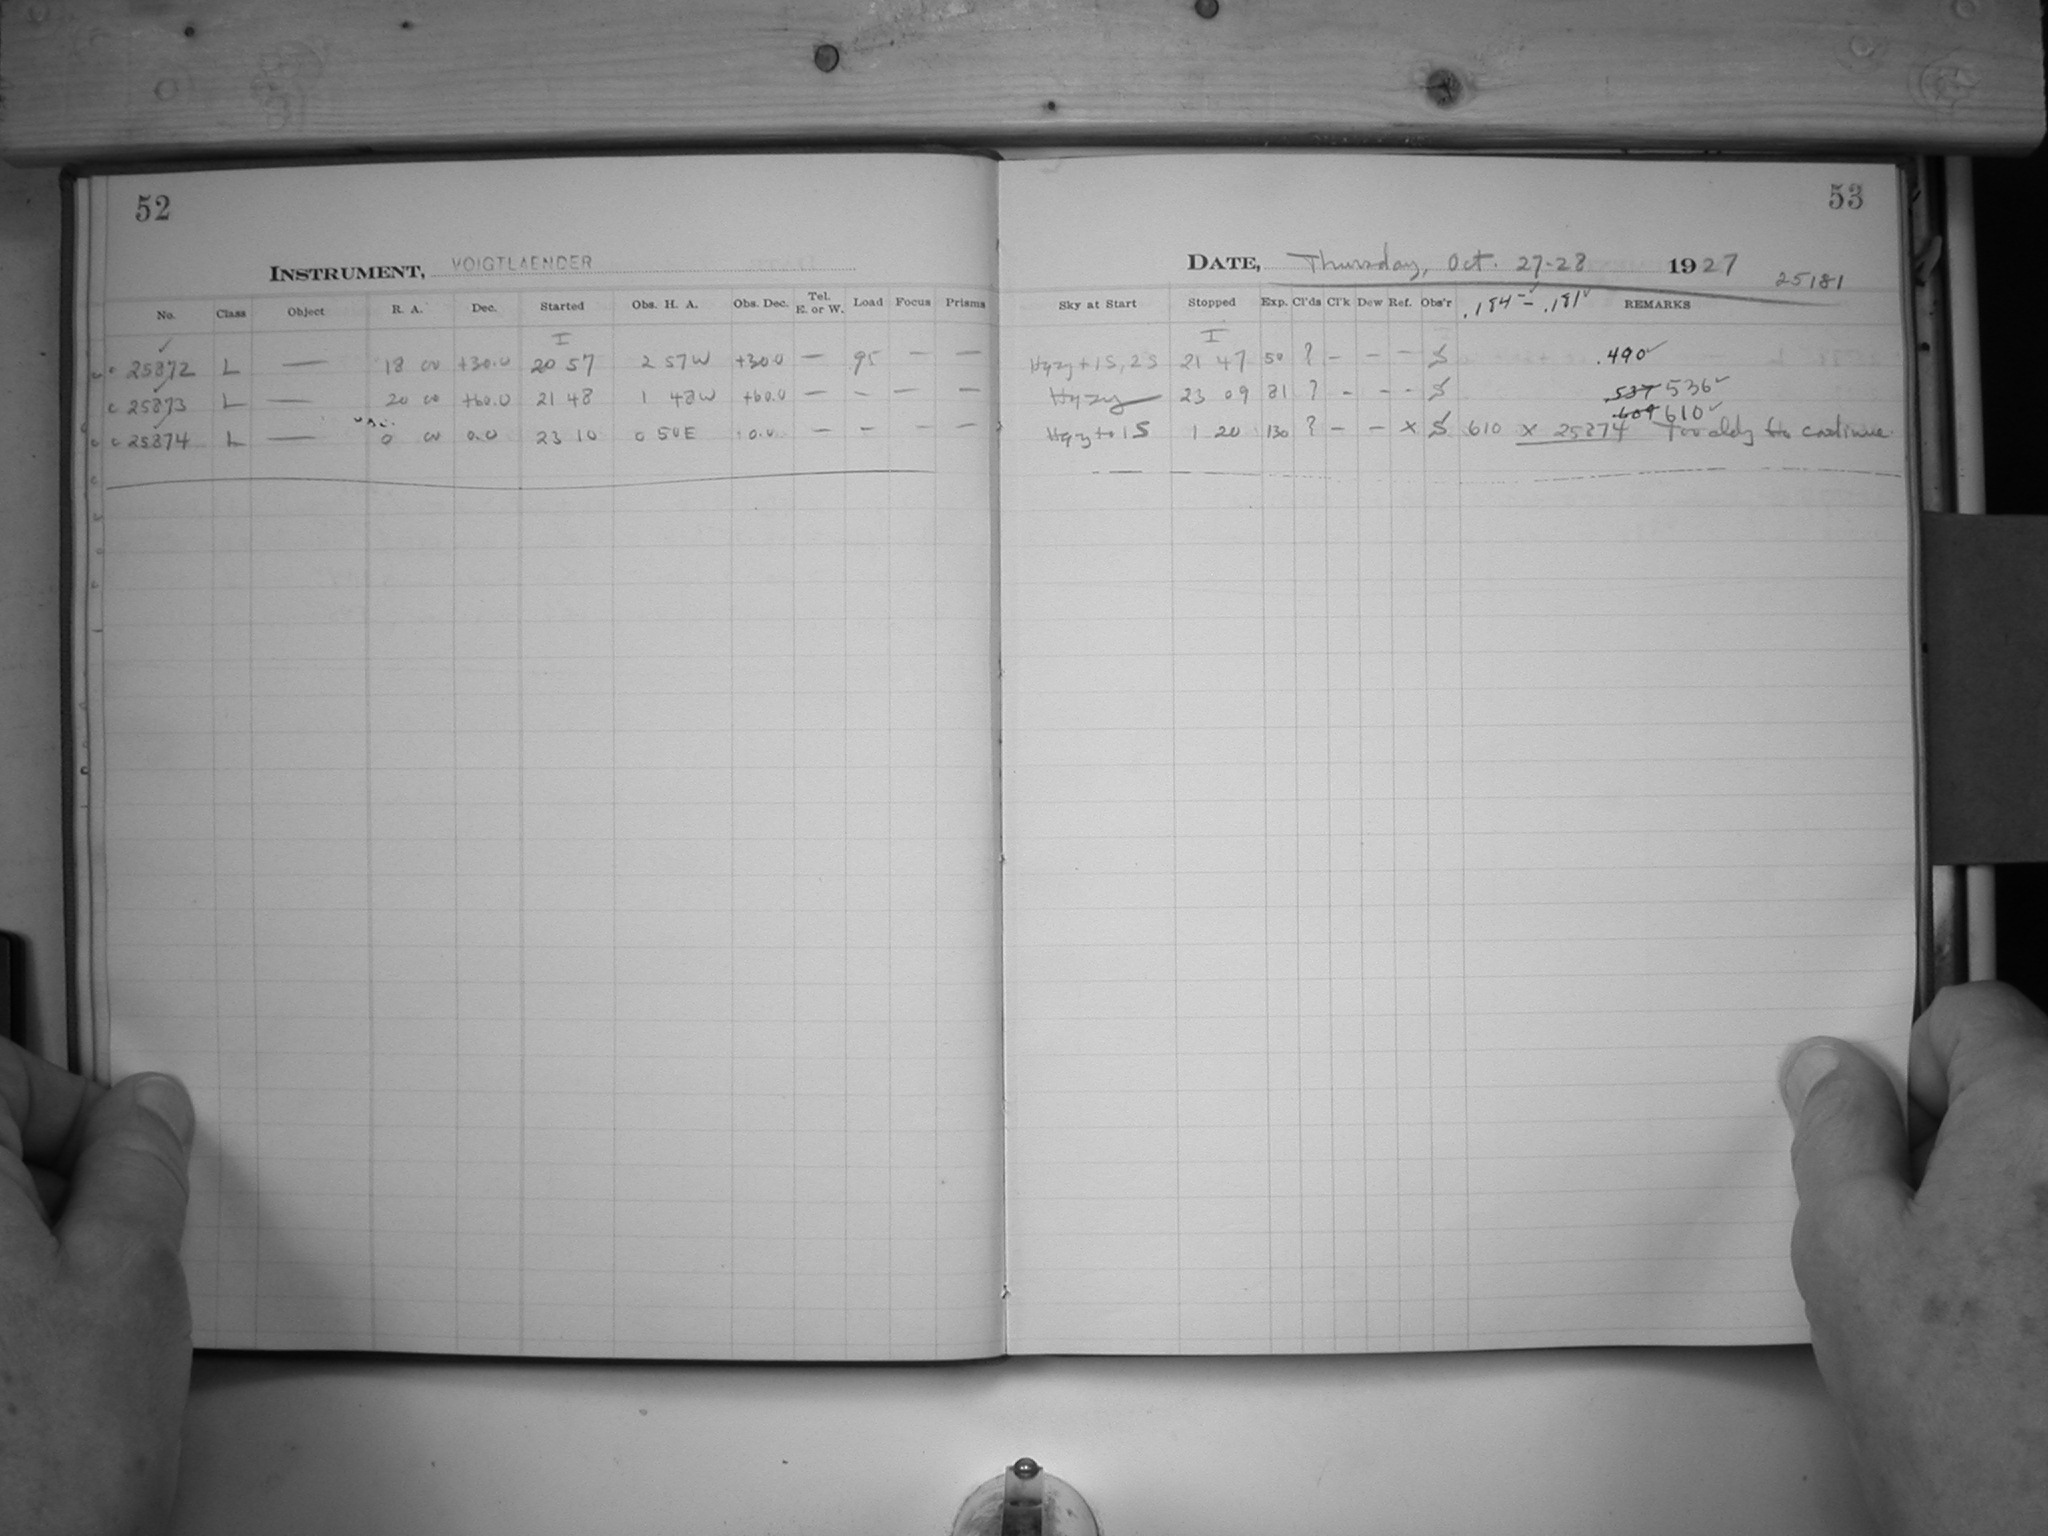 52
INSTRUMENT, VOIGTLAENDER
No. Class Object R. A. Dec. Started Obs. H. A. Obs. Dec. Tel. E. or W. Load Focus Prisms
I
c 25872 L — 18 00 +30.0 20 57 2 57W +30.0 — 95 — —
c 25873 L — 20 00 +60.0 21 48 1 48W +60.0 — — — —
c 25874 L — 0 00 0.0 23 10 0 50E 0.0 — — — —
53
DATE, Thursday, Oct. 27-28 1927
25181
Sky at Start Stopped Exp. Cl'ds Cl'k Dew Ref. Obs'r .184 - .181 REMARKS
I
Hazy + 1S, 2S 21 47 50 ? — — — .490
Hazy 23 09 81 ? — — — 537 536
609 610
Hazy to 1S 1 20 130 ? — — x 610 x 25874 Too cldy to continue